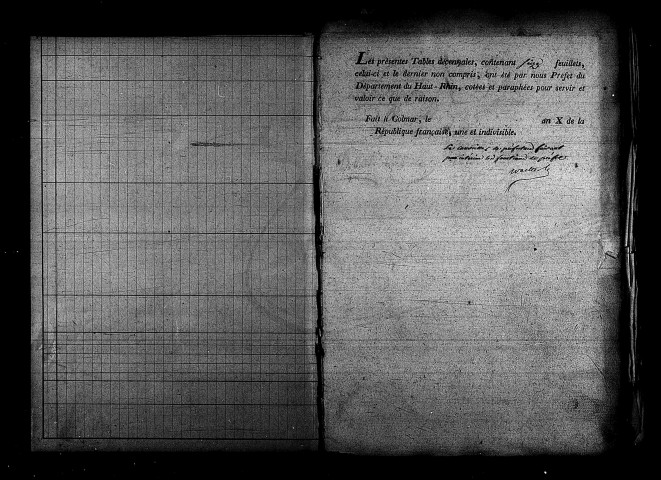 Les présentes Tables décennales, contenant cinq feuillets,
celui-ci et le dernier non compris, ont été par nous Prefet du
Département du Haut-Rhin, cotées et paraphées pour servir et
valoir ce que de raison.
Fait à Colmar, le an X de la
République française, une et indivisible.
le de préfecture faisant
par intérim les fonctions de préfet